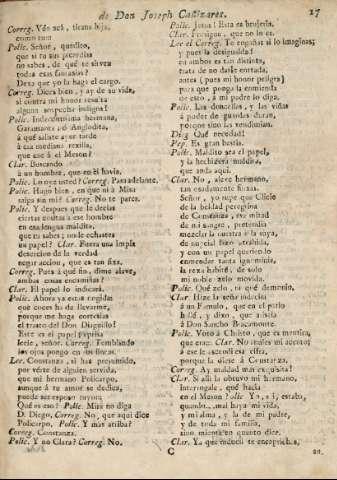 de Don Joseph Cañizares. 17
Correg. Ven acá, tirana hija,
Polic. Señor, quedito,
que si tu sus prendas
no sabes, de qué te sirven
todas esas fantasías?
Dexa que yo la haga el cargo.
Correg. Dices bien, y ay de su vida,
si contra mi honor resulta
alguna sospecha indigna!
Polic. Indecentísima hermana,
Garamanta ó Anglodita,
á qué saliste ayer tarde
á esa mediana
que cae á el Meson?
Clar. Buscando
á un hombre, que en él havia.
Polic. Lo oye usted? Correg. Pasa adelante.
Polic. Hago bien, en que ni á Misa
salga sin mí? Correg. No te pares.
Polic. Y despues que le decias
ciertas cositas á ese hombre
en esa lengua maldita,
que tu sabes; no le echastes
un papel? Clar. Fuera una impía
detraccion de la verdad
negar accion, que es tan fixa.
Correg. Pues á qué fin, dime aleve,
ambas cosas encaminas?
Clar. El papel lo indicará.
Polic. Ahora ya estás cogida
qué coces ha de llevarme,
porque me haga cortesías
el trasto del Don Diaguillo!
Este es el papel
leele, señor. Correg. Temblando
los ojos pongo en sus líneas.
Lee. Constanza, si has presumido,
por verte de alguien servida,
que mi hermano Policarpo,
aunque á tu amor se dedica,
puede ser esposo tuyo;
Qué es eso? Polic. Mira no diga
D. Diego, Correg. No, que aqui dice
Policarpo, Polic. Y mas arriba?
Correg. Constanza.
Polic. Y no Clara? Correg. No.
Polic. Jesus! Esta es brujería.
Clar. Prosigue, que no lo es.
Lee el Correg. Te engañas si lo imaginas;
y pues la desigualdad
en ambos es tan distinta,
trata de no darle entrada,
antes (pues mi honor peligra)
para que ponga la enmienda
de esto, á mi padre lo diga.
Polic. Las doncellas, y las viñas
á poder de guardas duran,
porque sino las vendimian.
Dieg. Qué necedad!
Pep. Es gran bestia.
Polic. Maldito sea el papel,
y la hechicera maldita,
que anda aquí.
Clar. No, aleve hermano,
tan osadamente finxas.
Señor, yo supe que Clicie
de la beldad peregrina
de Constanza, esa mitad
de mi sangre, pretendia
mezclar la nuestra á la suya,
de su cielo atrahida,
y con un papel queriendo
enmendar tanta ignominia,
la rexa habité, de solo
mi noble zelo movida.
Polic. Qué zelo, ni qué demonio,
Clar. Hize la seña
á un Famulo, que en el patio
hallé, y dixo, que asistia
á Don Sancho Bracamonte.
Polic. Voto á Christo, que es mentira,
que era= Clar. No niales mi acento;
á ese le di esa cifra,
porque la diese á Constanza.
Correg. Ay maldad mas exquisita!
Clar. Si allí la obtuvo mi hermano,
interrogale, qué hacia
en el Meson? Polic. Yo, sí, estaba,
quando... mal haya mi vida,
y mi alma, y la de mi padre,
y de toda mi familia,
sino miente en quanto dice.
Clar. Ya que indocil te encaprichas,
C